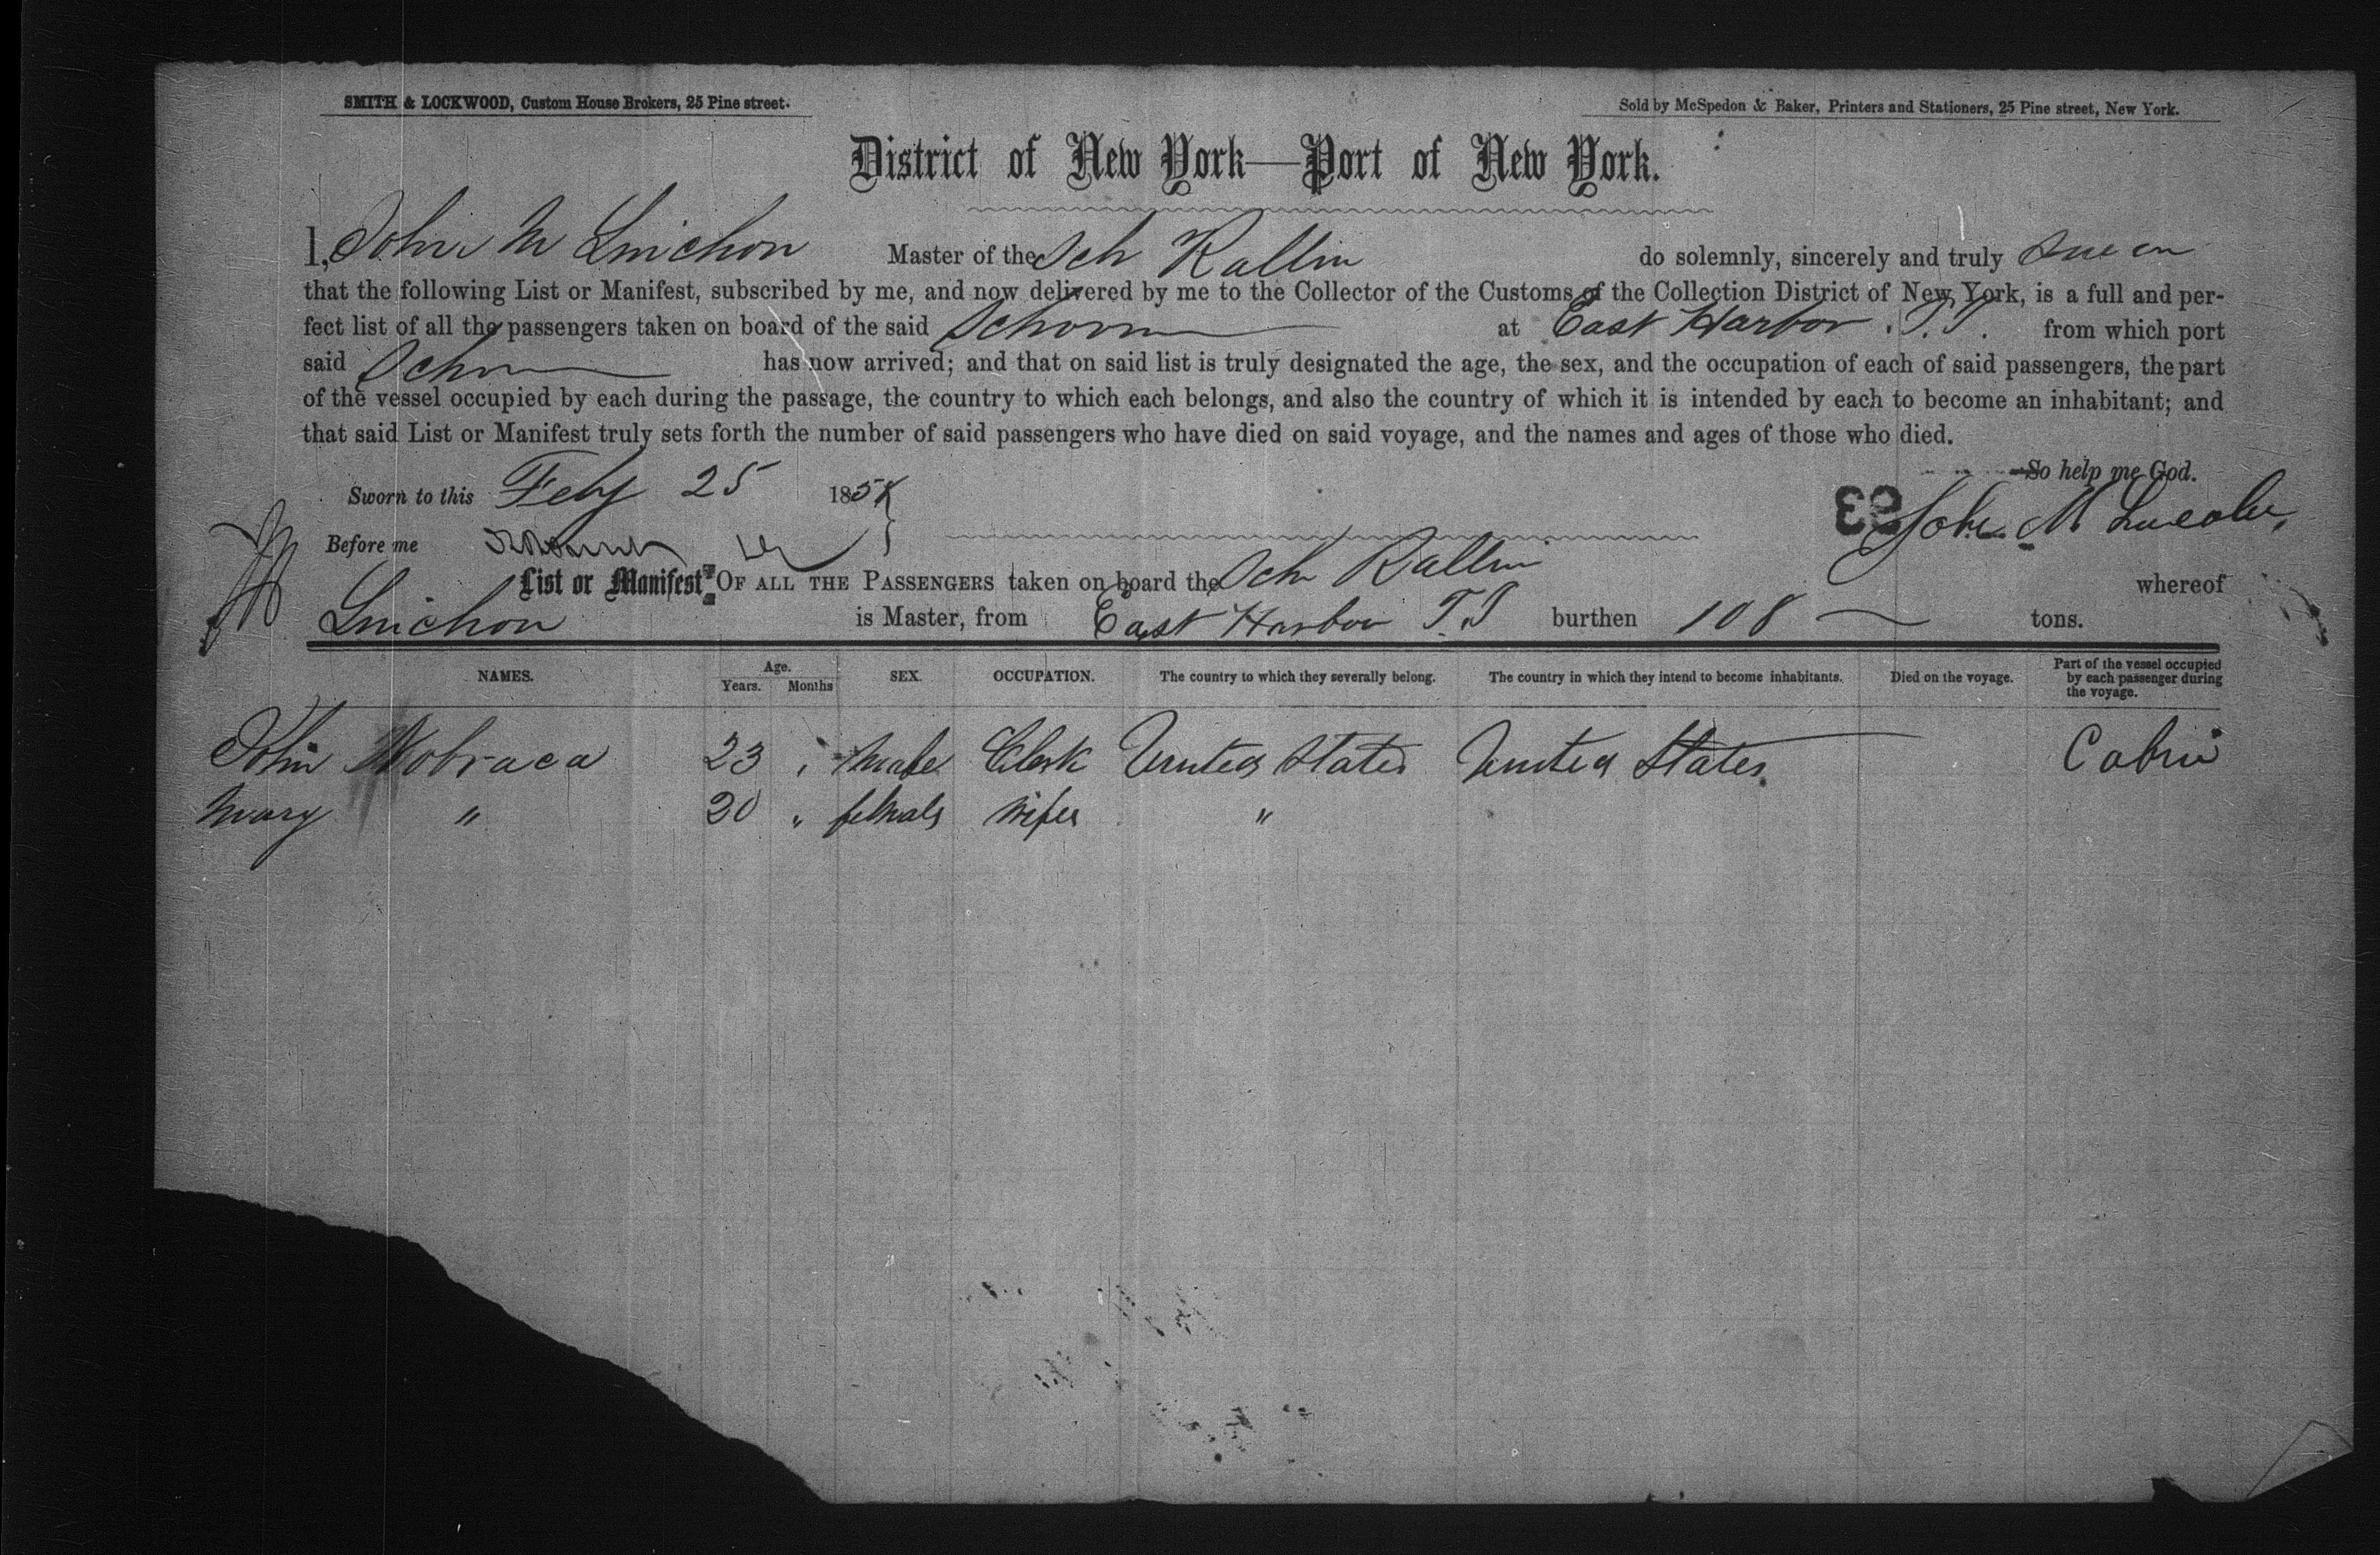 SMITH & LOCKWOOD, Custom House Brokers, 25 Pine street.
Sold by McSpedon & Baker, Printers and Stationers, 25 Pine street, New York.
District of New York—Port of New York.
I, John M Linichon Master of the Sch Rallin do solemnly, sincerely and truly
that the following List or Manifest, subscribed by me, and now delivered by me to the Collector of the Customs of the Collection District of New York, is a full and per-
fect list of all the passengers taken on board of the said Schooner at East Harbor T.I. from which port
said Schr has now arrived; and that on said list is truly designated the age, the sex, and the occupation of each of said passengers, the part
of the vessel occupied by each during the passage, the country to which each belongs, and also the country of which it is intended by each to become an inhabitant; and
that said List or Manifest truly sets forth the number of said passengers who have died on said voyage, and the names and ages of those who died.
So help me God.
Sworn to this Feby 25 185
Before me
John M
List or Manifest OF ALL THE PASSENGERS taken on board the Sch Rallin whereof
Linichon is Master, from East Harbor T.I burthen 108 tons.
NAMES. Age. Years. Months SEX. OCCUPATION. The country to which they severally belong. The country in which they intend to become inhabitants. Died on the voyage. Part of the vessel occupied by each passenger during the voyage.
John Nobraca 23 " Male Clerk United States United States Cabin
Mary " 20 " female wife "